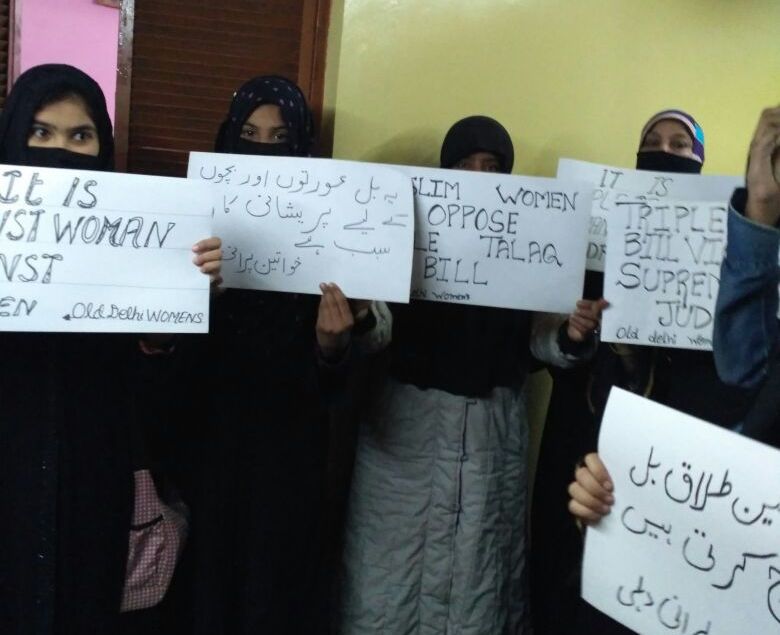 It IS
NST WOMAN
NST
EN
Old Delhi WOMENS
یہ بل عورتوں اور بچوں
کے لیے پریشانی کا
سبب ہے
خواتین پرانی
SLIM WOMEN
OPPOSE
LE TALAQ
BILL
womens
IT IS
TRIPLE
BIll VI
SUPREM
JUD
Old delhi wom
ین طلاق بل
کرتی ہیں